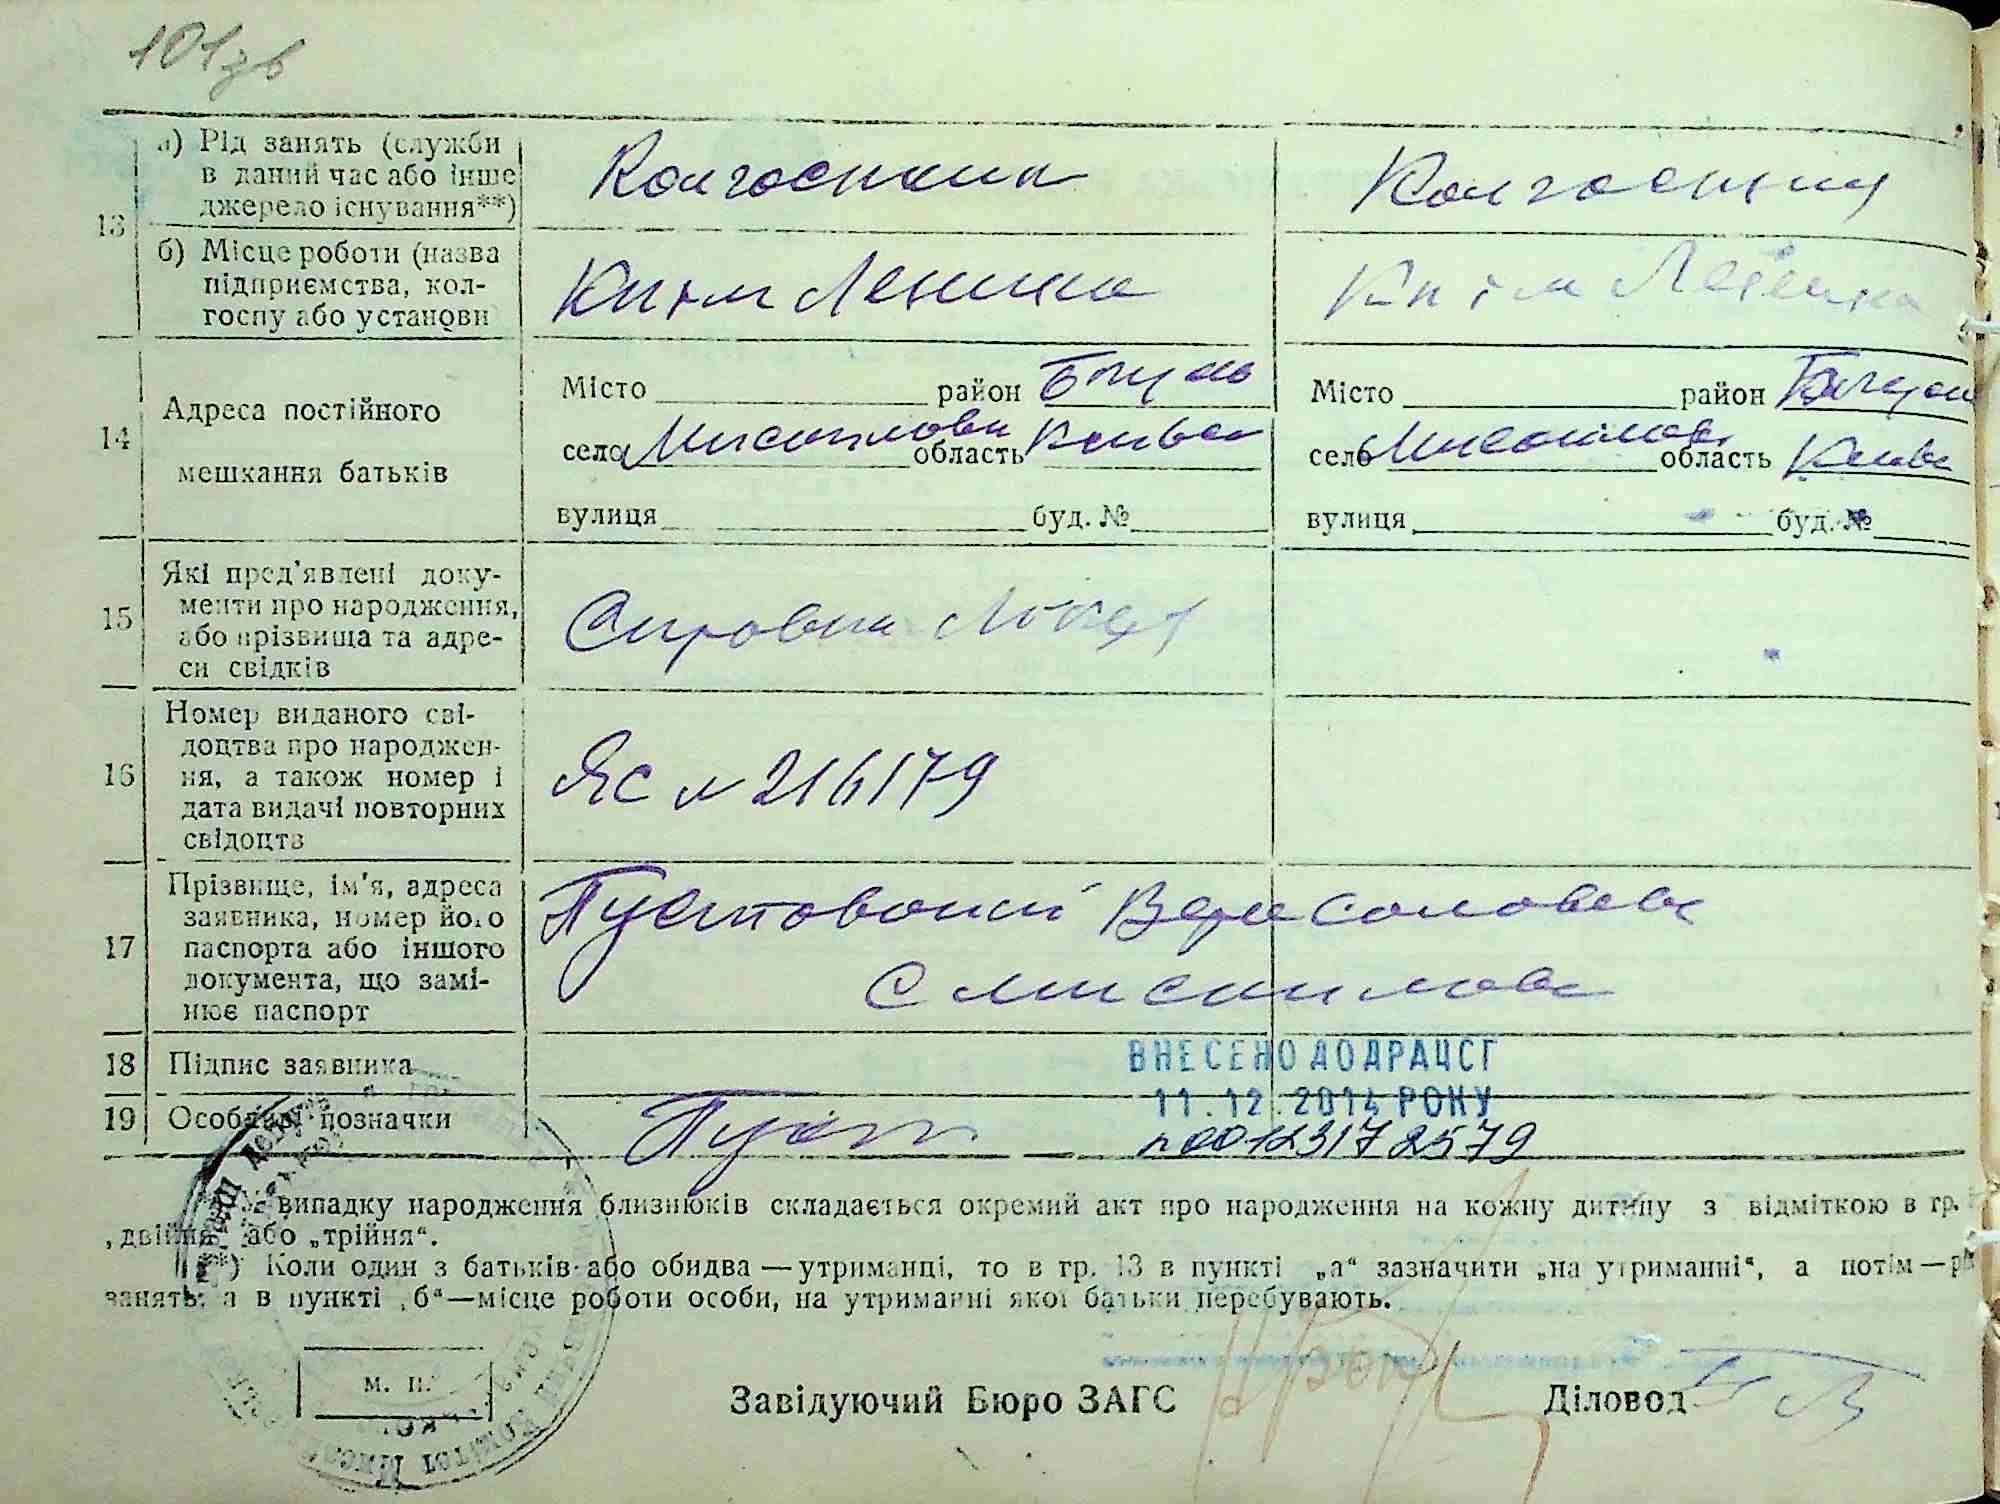 101зв
а) Рід занять (служби
в даний час або інше
джерело існування**)
Колгоспник
Колгоспниця
13
б) Місце роботи (назва
підприємства, кол-
госпу або установи
К-п ім Леніна
К-п ім Леніна
14
Адреса постійного
мешкання батьків
Місто район
село область Київська
вулиця буд. №
Місто район
село область Київська
вулиця буд. №
15
Які пред'явлені доку-
менти про народження,
або прізвища та адре-
си свідків
Справка
16
Номер виданого сві-
доцтва про народжен-
ня, а також номер і
дата видачі повторних
свідоцтв
ЯС № 216179
17
Прізвище, ім'я, адреса
заявника, номер його
паспорта або іншого
документа, що замі-
нює паспорт
18 Підпис заявника
ВНЕСЕНО ДО ДРАЦСГ
11.12.2014 РОКУ
19 Особливі позначки
Пуст
n00123172579
*) У випадку народження близнюків складається окремий акт про народження на кожну дитину з відміткою в гр.
„двійня" або „трійня".
**) Коли один з батьків або обидва — утриманці, то в гр. 13 в пункті „а" зазначити „на утриманні", а потім — рід
занять, а в пункті „б" — місце роботи особи, на утриманні якої батьки перебувають.
м. п.
Завідуючий Бюро ЗАГС
Діловод